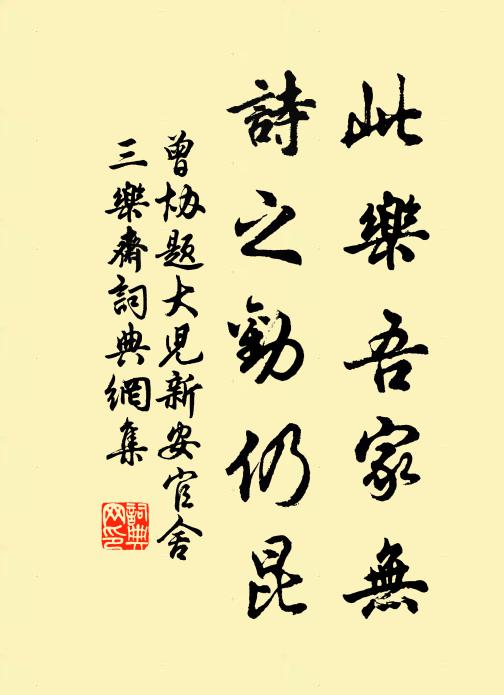 此樂吾家無
詩之勤仍昆
曾協題大兒新安官舍
三樂齋詞典網集
詞典
网印